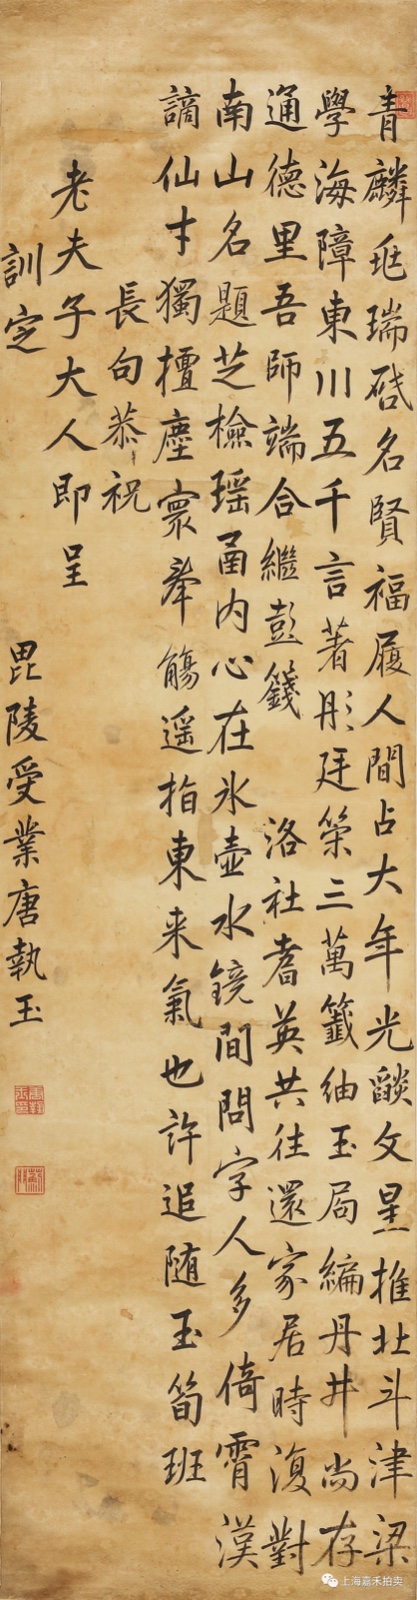 青麟毓瑞啓名賢福履人間占大年光燄文星推北斗津梁
學海障東川五千言著彤廷策三萬籤紬玉局編丹井尚存
通德里吾師端合繼彭籛 洛社耆英共往還家居時復對
南山名題芝檢瑶函内心在氷壺水鏡間問字人多倚霄漢
謫仙才獨擅塵寰舉觴遥指東来氣也許追随玉筍班
長句恭祝
老夫子大人即呈
訓定
毘陵受業唐執玉
上海嘉禾拍卖